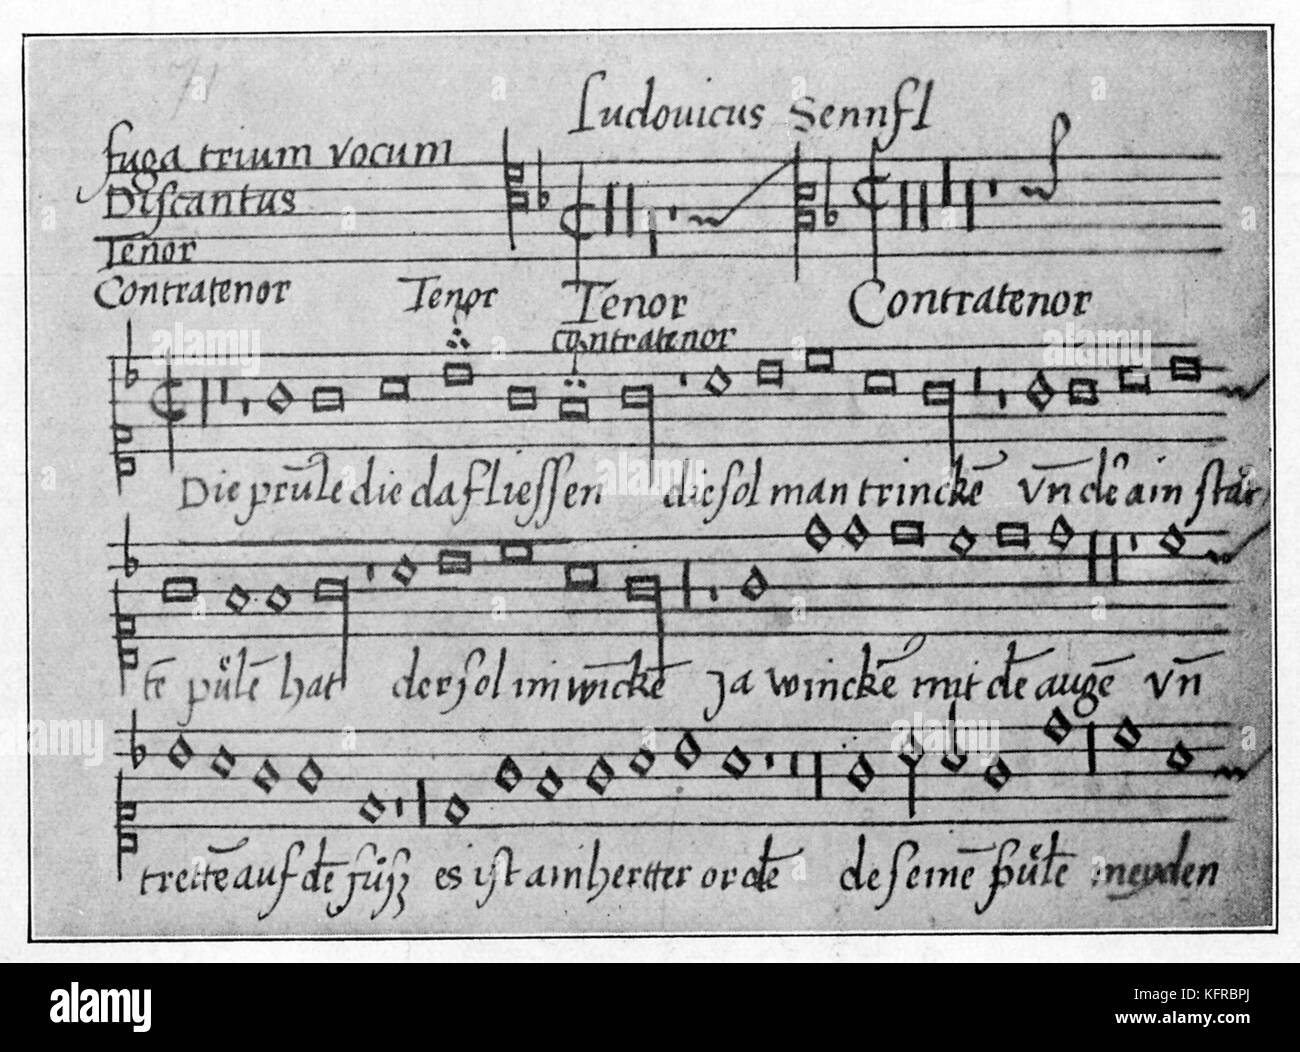 71
Ludouicus Sennfl
fuga trium vocum
Discantus
Tenor
Contratenor Tenor Tenor Contratenor
contratenor
Die prūle die da fliessen die sol man trinckē Vn̄ dē ain stär
tē pülē hat der sol im winckē Ja winckē mit dē augē Vn̄
trettē auf dē füß es ist ain hertter ordē de seinē pülē meyden
alamy
Image ID: KFRBPJ
www.alamy.com